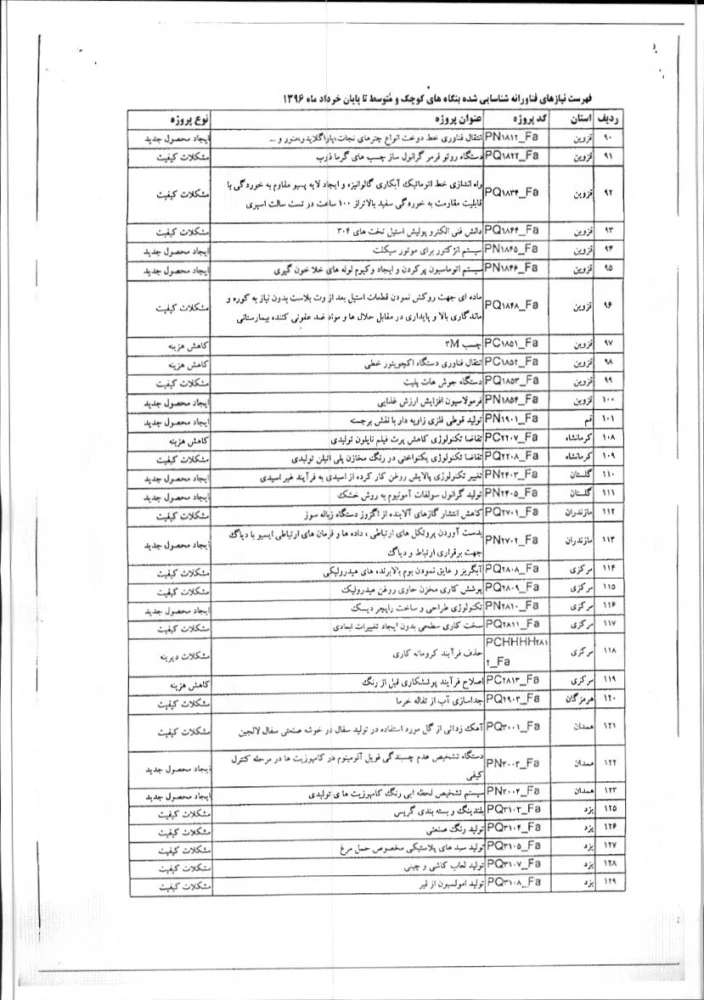 فهرست نیازهای فناورانه شناسایی شده بنگاه های کوچک و متوسط تا پایان خرداد ماه ۱۳۹۶
ردیف استان کد پروژه عنوان پروژه نوع پروژه
۹۰ قزوین PN۱۸۱۲_Fa انتقال فناوری خط دوخت انواع چترهای نجات،پاراگلایدر،منور و ... ایجاد محصول جدید
۹۱ قزوین PQ۱۸۲۲_Fa دستگاه روتو فرمر گرانول ساز چسب های گرما ذوب مشکلات کیفیت
۹۲ قزوین PQ۱۸۳۴_Fa راه اندازی خط اتوماتیک آبکاری گالوانیزه و ایجاد لایه پسیو مقاوم به خوردگی با
قابلیت مقاومت به خوردگی سفید بالاتراز ۱۰۰ ساعت در تست سالت اسپری مشکلات کیفیت
۹۳ قزوین PQ۱۸۴۴_Fa دانش فنی الکترو پولیش استیل تخت های ۳۰۴ مشکلات کیفیت
۹۴ قزوین PN۱۸۴۵_Fa سیستم انژکتور برای موتور سیکلت ایجاد محصول جدید
۹۵ قزوین PN۱۸۴۶_Fa سیستم اتوماسیون پرکردن و ایجاد وکیوم لوله های خلا خون گیری ایجاد محصول جدید
۹۶ قزوین PQ۱۸۴۸_Fa ماده ای جهت روکش نمودن قطعات استیل بعد از وت بلاست بدون نیاز به کوره و
ماندگاری بالا و پایداری در مقابل حلال ها و مواد ضد عفونی کننده بیمارستانی مشکلات کیفیت
۹۷ قزوین PC۱۸۵۱_Fa چسب ۳M کاهش هزینه
۹۸ قزوین PC۱۸۵۲_Fa انتقال فناوری دستگاه اکچویتور خطی کاهش هزینه
۹۹ قزوین PQ۱۸۵۳_Fa دستگاه جوش هات پلیت مشکلات کیفیت
۱۰۰ قزوین PN۱۸۵۴_Fa فرمولاسیون افزایش ارزش غذایی ایجاد محصول جدید
۱۰۱ قم PN۱۹۰۱_Fa تولید قوطی فلزی زاویه دار با نقش برجسته ایجاد محصول جدید
۱۰۸ کرمانشاه PC۲۲۰۷_Fa تقاضا تکنولوژی کاهش پرت فیلم نایلون تولیدی کاهش هزینه
۱۰۹ کرمانشاه PQ۲۲۰۸_Fa تقاضا تکنولوژی یکنواختی در رنگ مخازن پلی اتیلن تولیدی مشکلات کیفیت
۱۱۰ گلستان PN۲۴۰۳_Fa تغییر تکنولوژی پالایش روغن کار کرده از اسیدی به فرآیند غیر اسیدی ایجاد محصول جدید
۱۱۱ گلستان PN۲۴۰۵_Fa تولید گرانول سولفات آمونیوم به روش خشک ایجاد محصول جدید
۱۱۲ مازندران PQ۲۷۰۱_Fa کاهش انتشار گازهای آلاینده از اگزوز دستگاه زباله سوز مشکلات کیفیت
۱۱۳ مازندران PN۲۷۰۲_Fa بدست آوردن پروتکل های ارتباطی ، داده ها و فرمان های ارتباطی ایسیو با دیاگ
جهت برقراری ارتباط و دیاگ ایجاد محصول جدید
۱۱۴ مرکزی PQ۲۸۰۸_Fa آبگریز و عایق نمودن بوم بالابرنده های هیدرولیکی مشکلات کیفیت
۱۱۵ مرکزی PQ۲۸۰۹_Fa پوشش کاری مخزن حاوی روغن هیدرولیک مشکلات کیفیت
۱۱۶ مرکزی PN۲۸۱۰_Fa تکنولوژی طراحی و ساخت راپچر دیسک ایجاد محصول جدید
۱۱۷ مرکزی PQ۲۸۱۱_Fa سخت کاری سطحی بدون ایجاد تغییرات ابعادی مشکلات کیفیت
۱۱۸ مرکزی PCHHHH۲۸۱
۲_Fa حذف فرآیند کروماته کاری مشکلات دیرینه
۱۱۹ مرکزی PC۲۸۱۳_Fa اصلاح فرآیند پوششکاری قبل از رنگ کاهش هزینه
۱۲۰ هرمزگان PQ۲۹۰۳_Fa جداسازی آب از تفاله خرما مشکلات کیفیت
۱۲۱ همدان PQ۳۰۰۱_Fa آهک زدائی از گل مورد استفاده در تولید سفال در خوشه صنعتی سفال لالجین مشکلات کیفیت
۱۲۲ همدان PN۳۰۰۳_Fa دستگاه تشخیص عدم چسبندگی فویل آلومینوم در کامپوزیت ها در مرحله کنترل
کیفی ایجاد محصول جدید
۱۲۳ همدان PN۳۰۰۴_Fa سیستم تشخیص لحظه ایی رنگ کامپوزیت های تولیدی ایجاد محصول جدید
۱۲۵ یزد PQ۳۱۰۳_Fa بلندینگ و بسته بندی گریس مشکلات کیفیت
۱۲۶ یزد PQ۳۱۰۴_Fa تولید رنگ صنعتی مشکلات کیفیت
۱۲۷ یزد PQ۳۱۰۵_Fa تولید سبد های پلاستیکی مخصوص حمل مرغ مشکلات کیفیت
۱۲۸ یزد PQ۳۱۰۷_Fa تولید لعاب کاشی و چینی مشکلات کیفیت
۱۲۹ یزد PQ۳۱۰۸_Fa تولید امولسیون از قیر مشکلات کیفیت